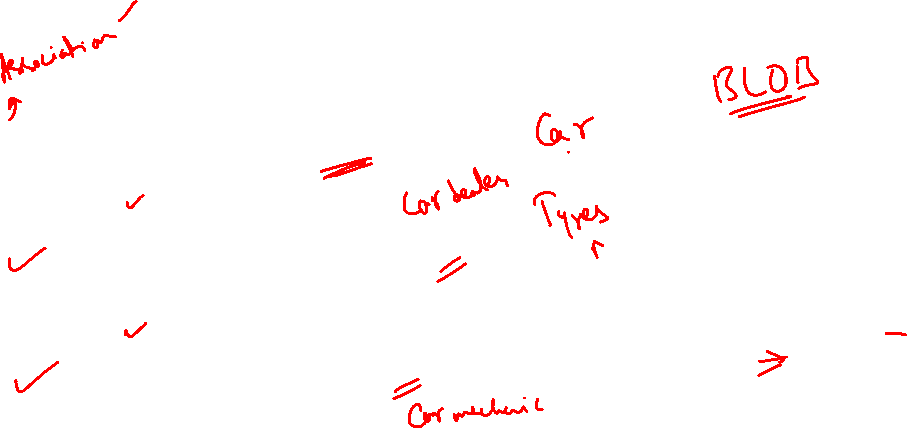 Association
BLOB
Car
Car dealer
Tyres
Car mechanic